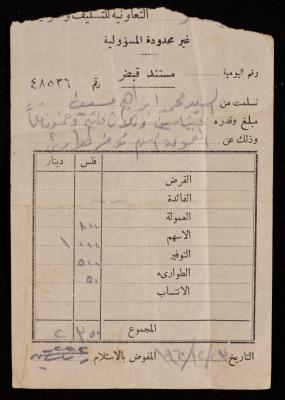 التعاونية للتسليف و
غير محدودة المسؤولية
رقم اليومية مستند قبض رقم ٤٨٥٣٦
تسلمت من السيد محمد ابراهيم
مبلغ وقدره وثلاث مائة وخمسون فلساً
وذلك عن
فلس دينار
القرض
الفائدة
العمولة ٨٠٠
الاسهم ١٠٠٠ ١
التوفير ٥٠٠
الطوارىء ٥٠
الانتساب
المجموع ٣٥٠ ٢
التاريخ المفوض بالاستلام